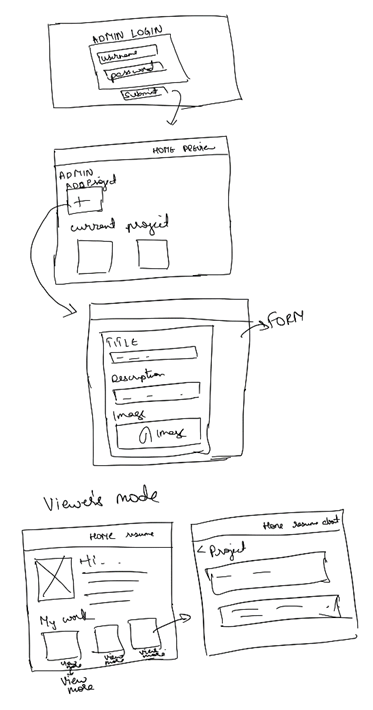 ADMIN LOGIN
username
password
submit
HOME PREVIEW
ADMIN
ADD Project
+
current project
FORM
TITLE
Description
Image
Image
Viewer's mode
HOME resume
Hi...
My work
View more
View more
View more
View more
Home resume about
< Project